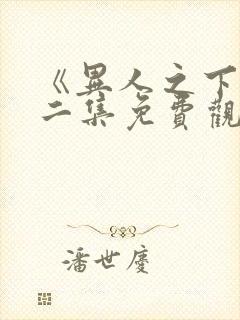 《異人之下
二集免費觀
潘世慶